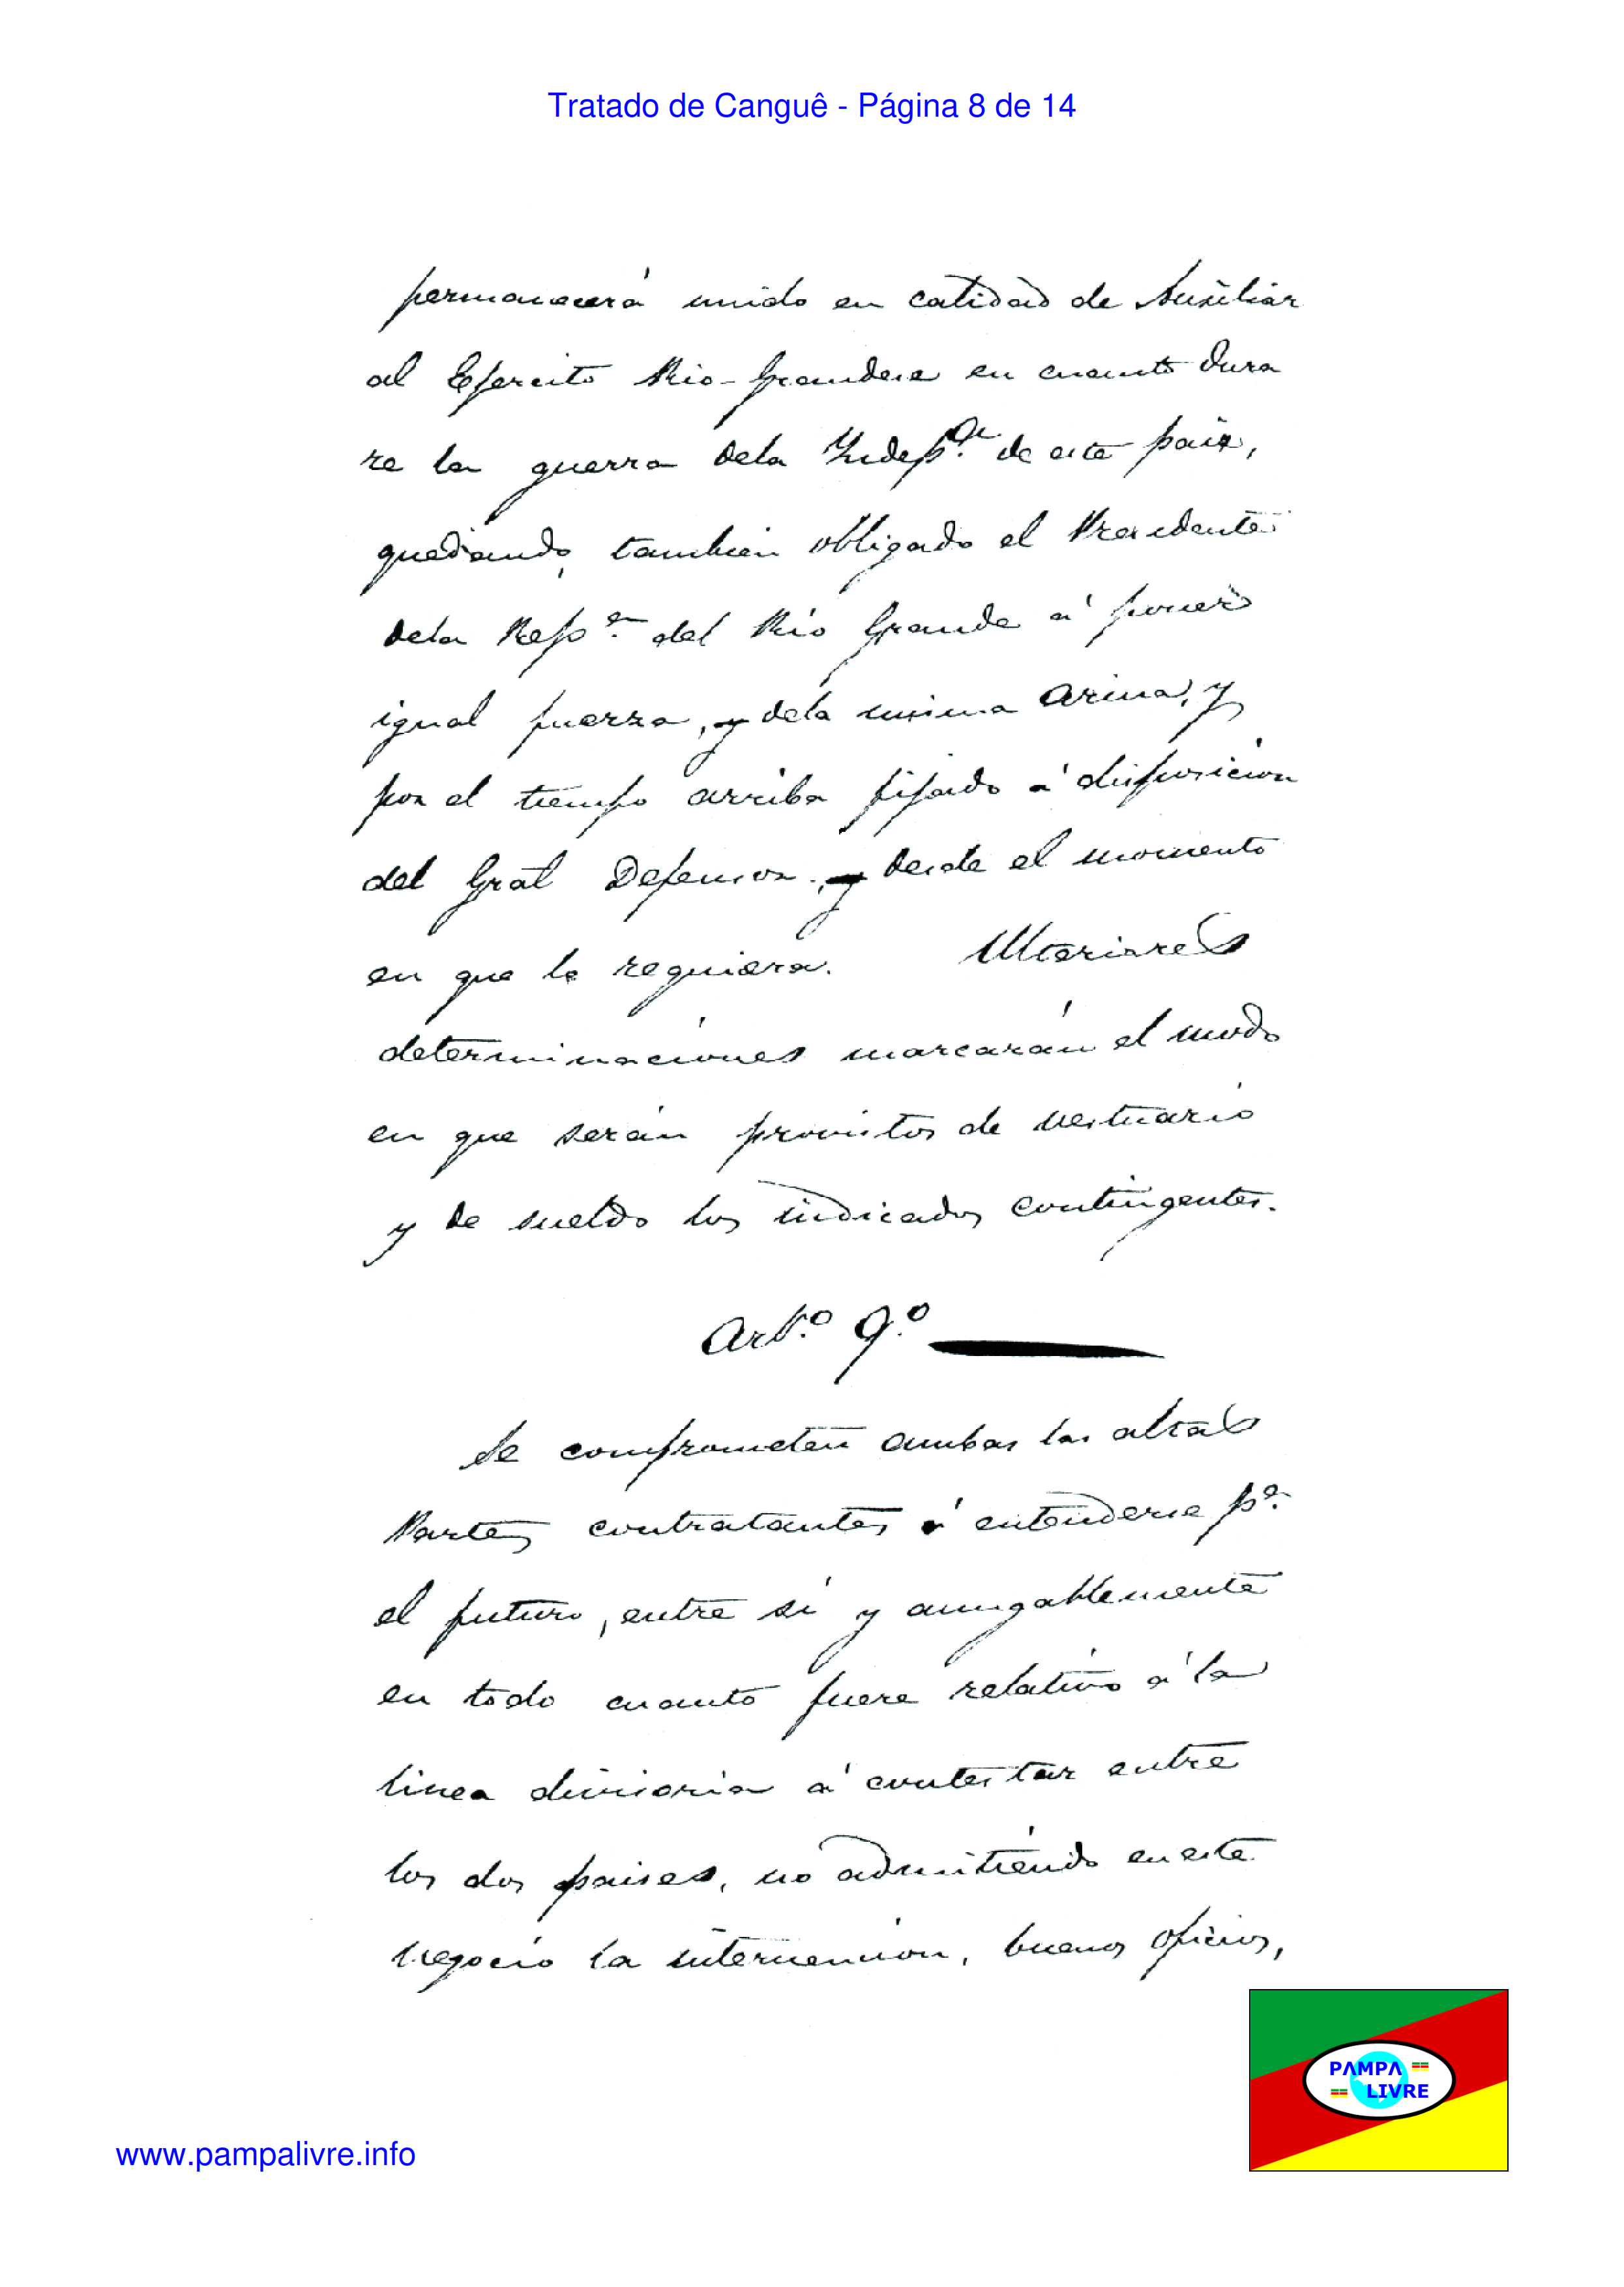 Tratado de Canguê - Página 8 de 14
permanacerá unido en calidad de Auxiliar
al Ejercito Rio-Grandese en cuanto dura
re la guerra dela Indep.ª de este paix,
quedando, tambien obligado el Presidente
dela Rep.ª del Rio Grande á poner
igual fuerza, y dela misma arma, y
por el tiempo arriba fijado á disposicion
del Gral Defensor, y desde el momento
en que lo requiera. Ulteriores
determinaciones marcarán el modo
en que serán provistos de vestuario
y de sueldo los indicados contingentes.
Art.º 9.º
Se comprometen ambas las altas
Partes contratantes á entenderse p.ª
el futuro, entre si y amigablemente
en todo cuanto fuere relativo á la
linea divisoria á contestar entre
los dos paises, no admitiendo en este
negocio la intervencion, buenos oficios,
PAMPA
LIVRE
www.pampalivre.info